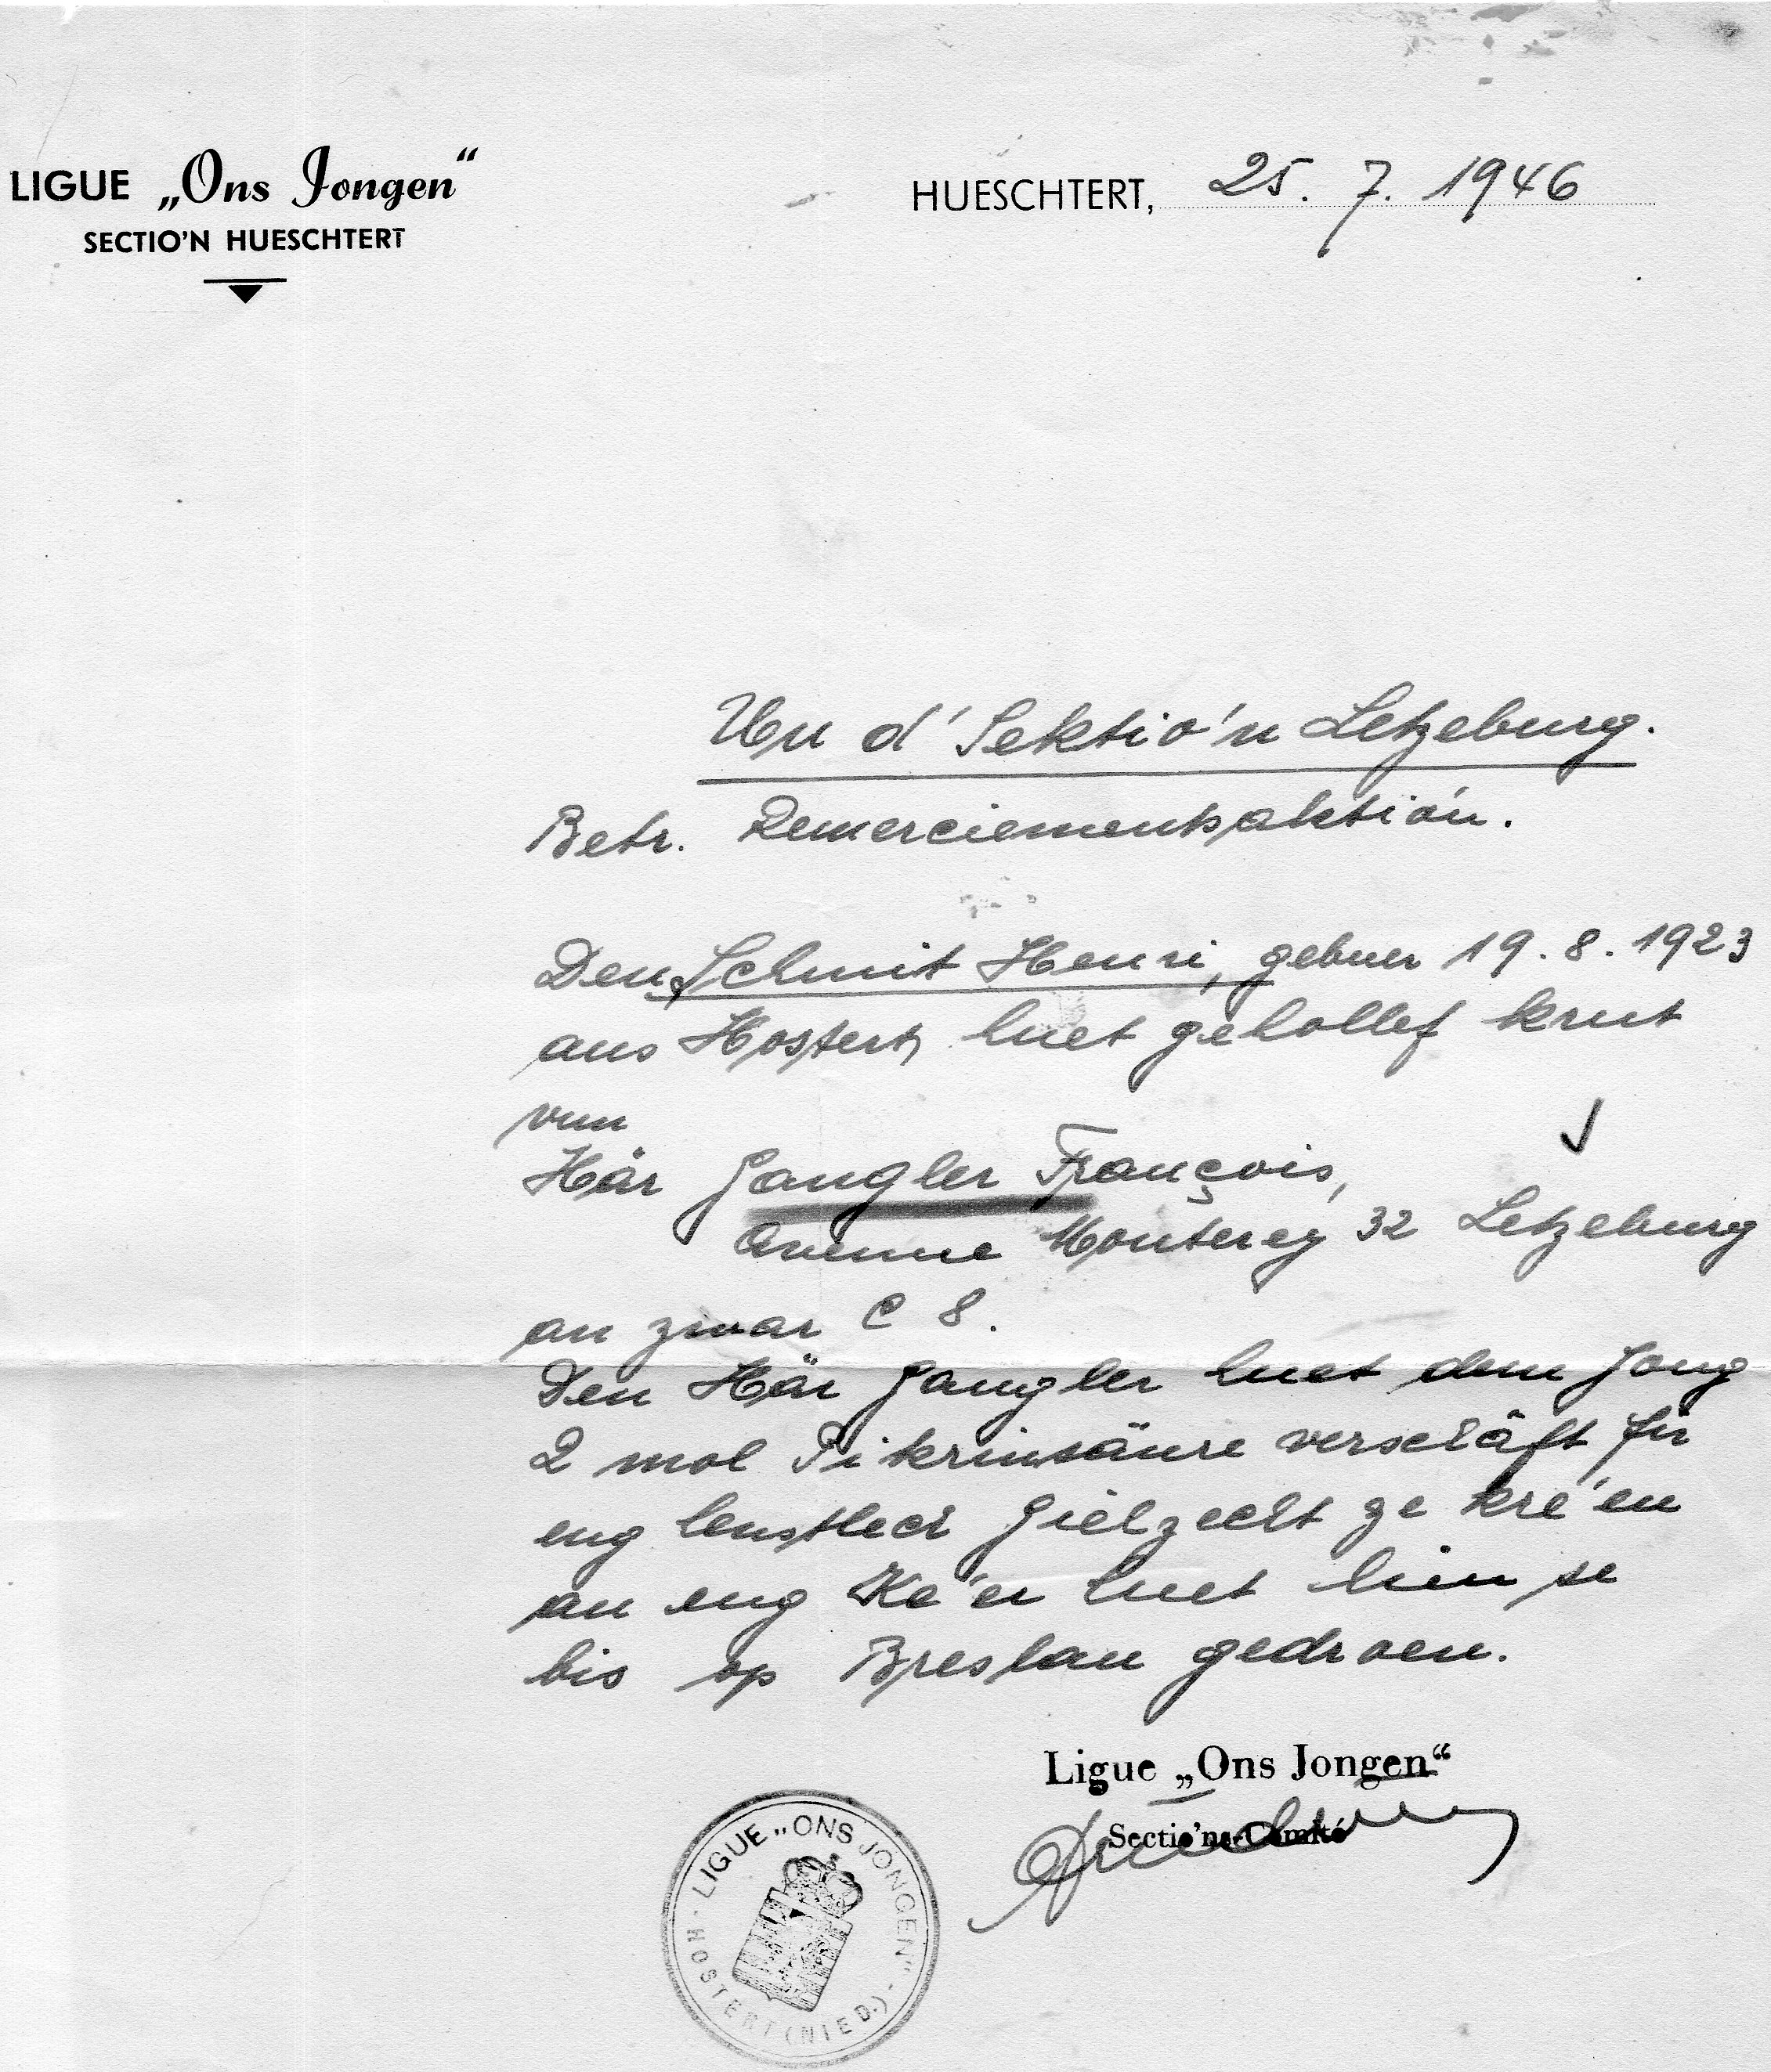 LIGUE „Ons Jongen“
SECTIO'N HUESCHTERT
HUESCHTERT, 25. 7. 1946
Un d'Sektio'n Letzeburg.
Betr. Remerciementsaktio'n.
Den Schmit Henri, gebuer 19.8.1923
aus Hostert, huet gehollef krut
vum
Här Gangler François,
Avenue Monterey 32 Letzeburg
an zwar C 8.
Den Här Gangler huet dem Jong
2 mol Pikrinsäure verschäft fir
eng kenstlech Gielzecht ze kre'en
an eng Ke'er huet hien se
bis op Breslau gedroen.
Ligue „Ons Jongen“
Sectio'ns-Comité
LIGUE „ONS JONGEN“
HOSTERT (NIED.)